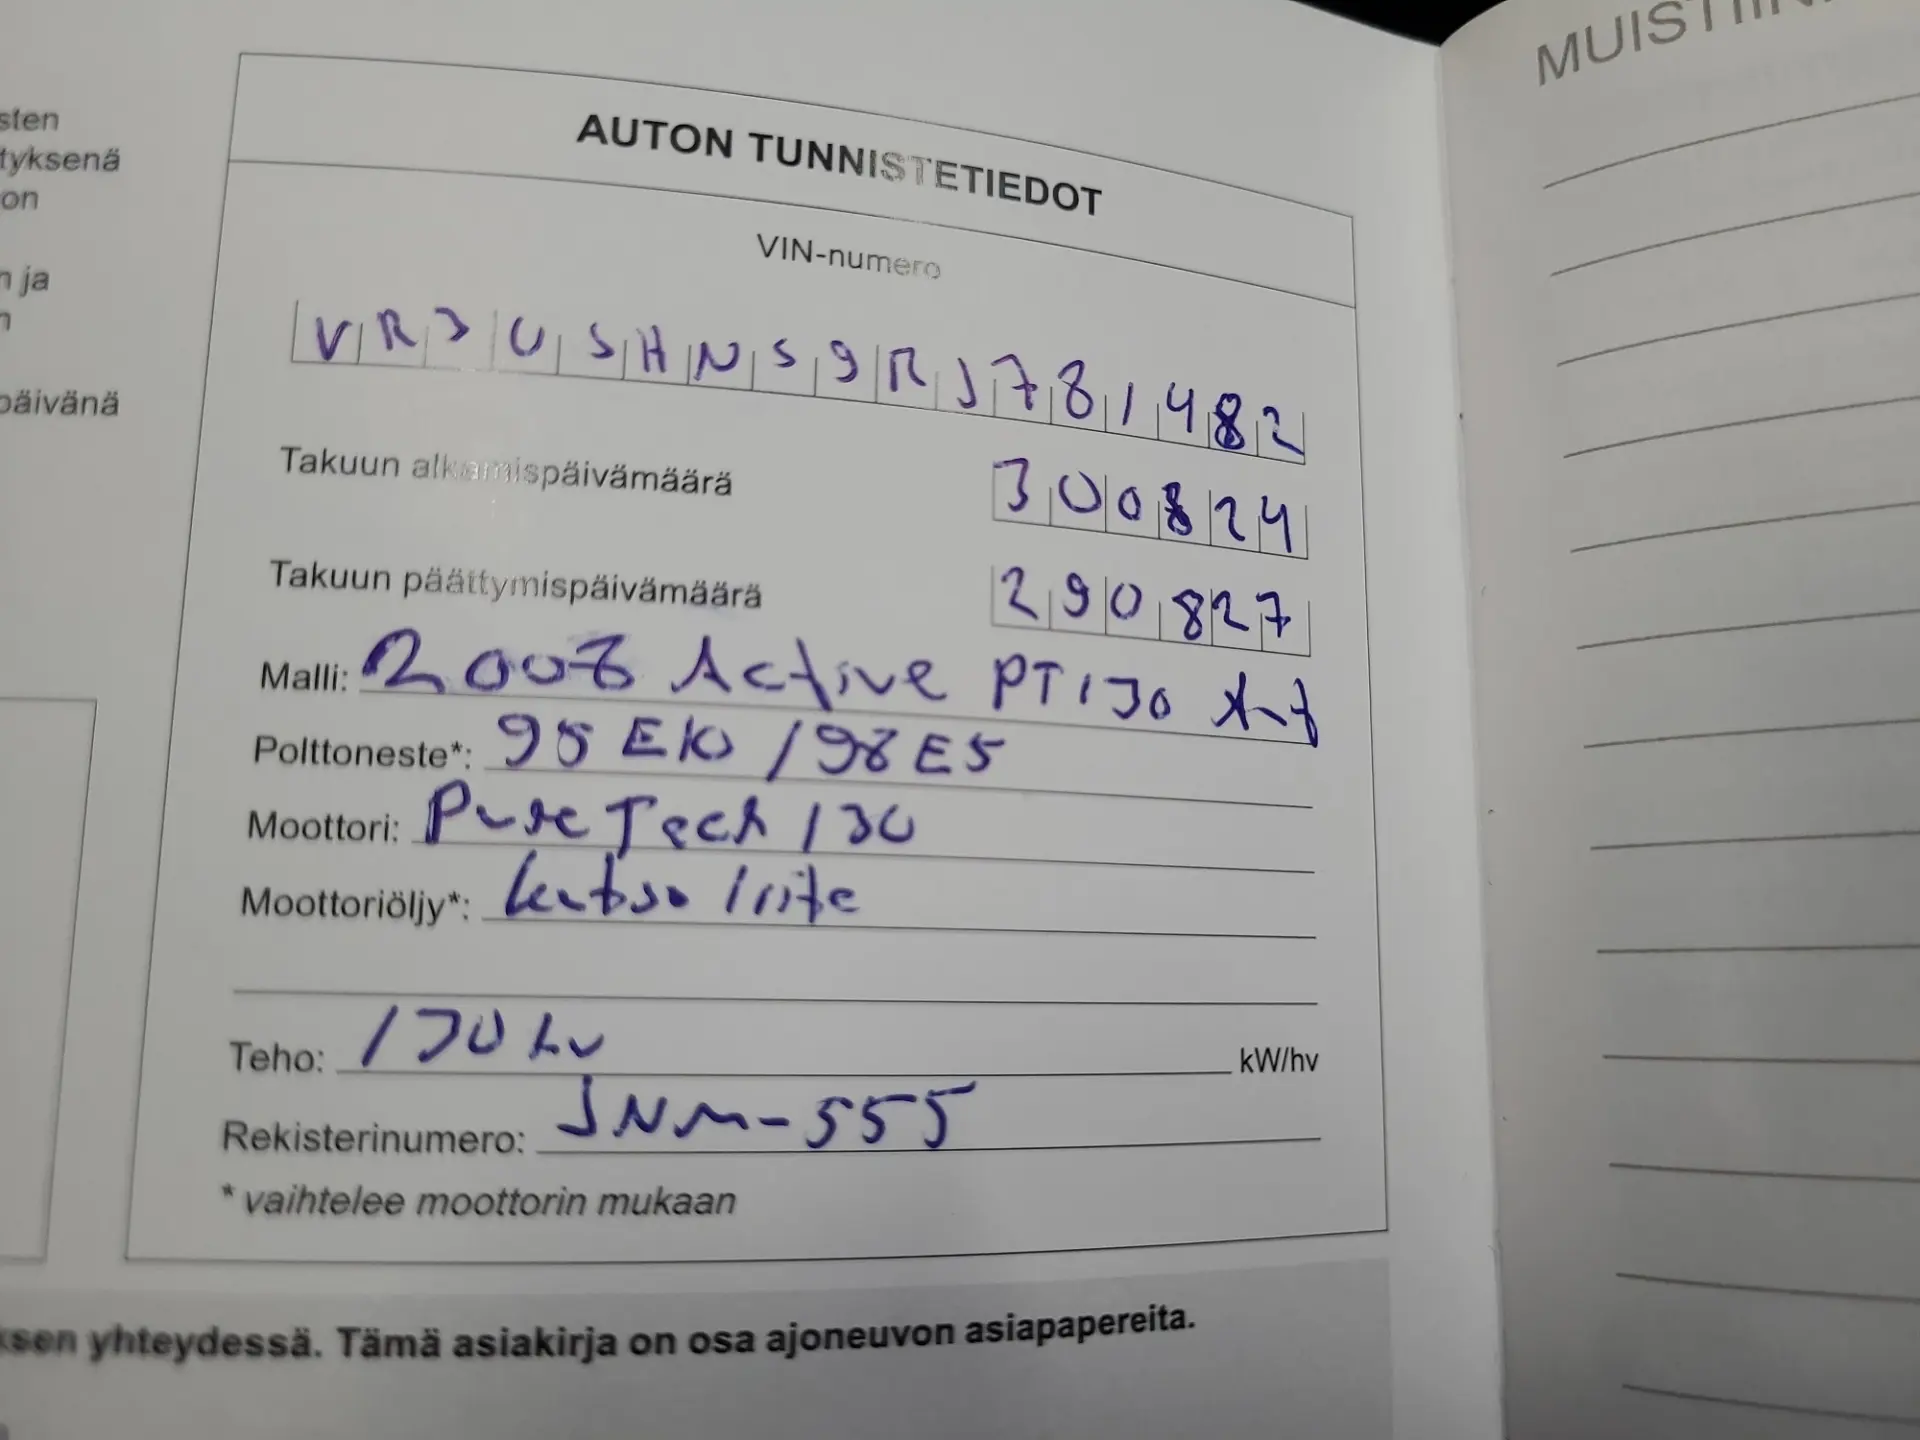 sten
tyksenä
on
n ja
n
päivänä
AUTON TUNNISTETIEDOT
VIN-numero
VR3USHNS9RJ781482
Takuun alkamispäivämäärä 300824
Takuun päättymispäivämäärä 290827
Malli: 2008 Active PT130 Aut
Polttoneste*: 95 E10 / 98 E5
Moottori: PureTech 130
Moottoriöljy*: katso liite
Teho: 130 hv kW/hv
Rekisterinumero: JNM-555
* vaihtelee moottorin mukaan
ksen yhteydessä. Tämä asiakirja on osa ajoneuvon asiapapereita.